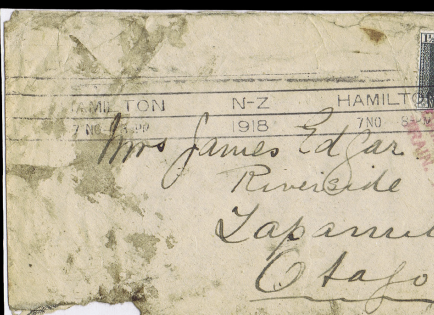 1½
HAMILTON N-Z HAMILTO
7 NO 1918 7NO
Mrs James Edgar
Riverside
Tapanu
Otago